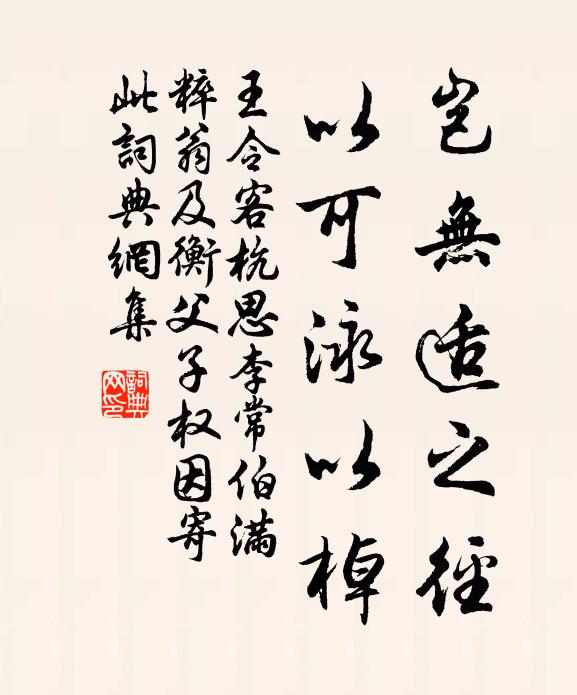 岂無适之径
以可泳以棹
王令客杭思李常伯满
粹翁及衡父子权因寄
此詞典網集
詞典网印